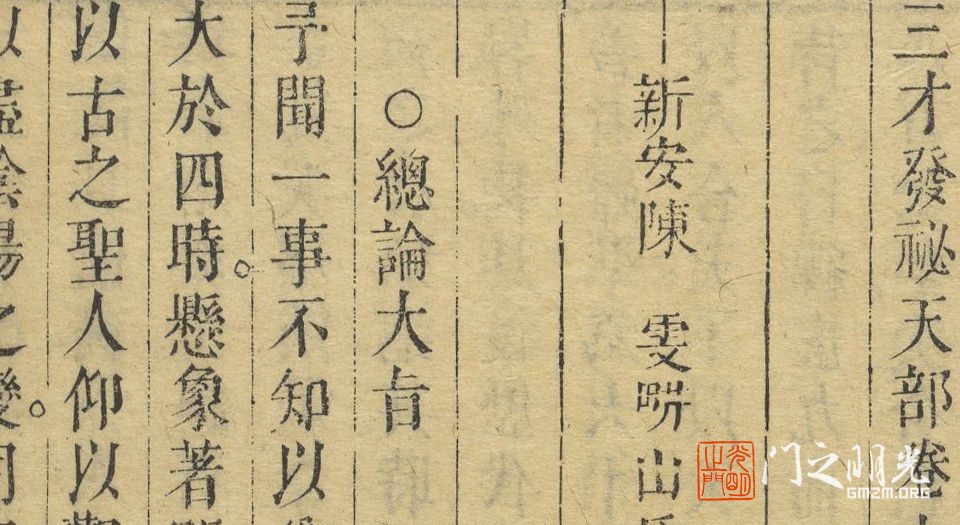 三才發祕天部卷
新安陳 雯畊山
○總論大旨
予聞一事不知以
大於四時。懸象著
以古之聖人仰以觀
以盡陰陽之變。
光明之門
门之明光
GMZM.ORG